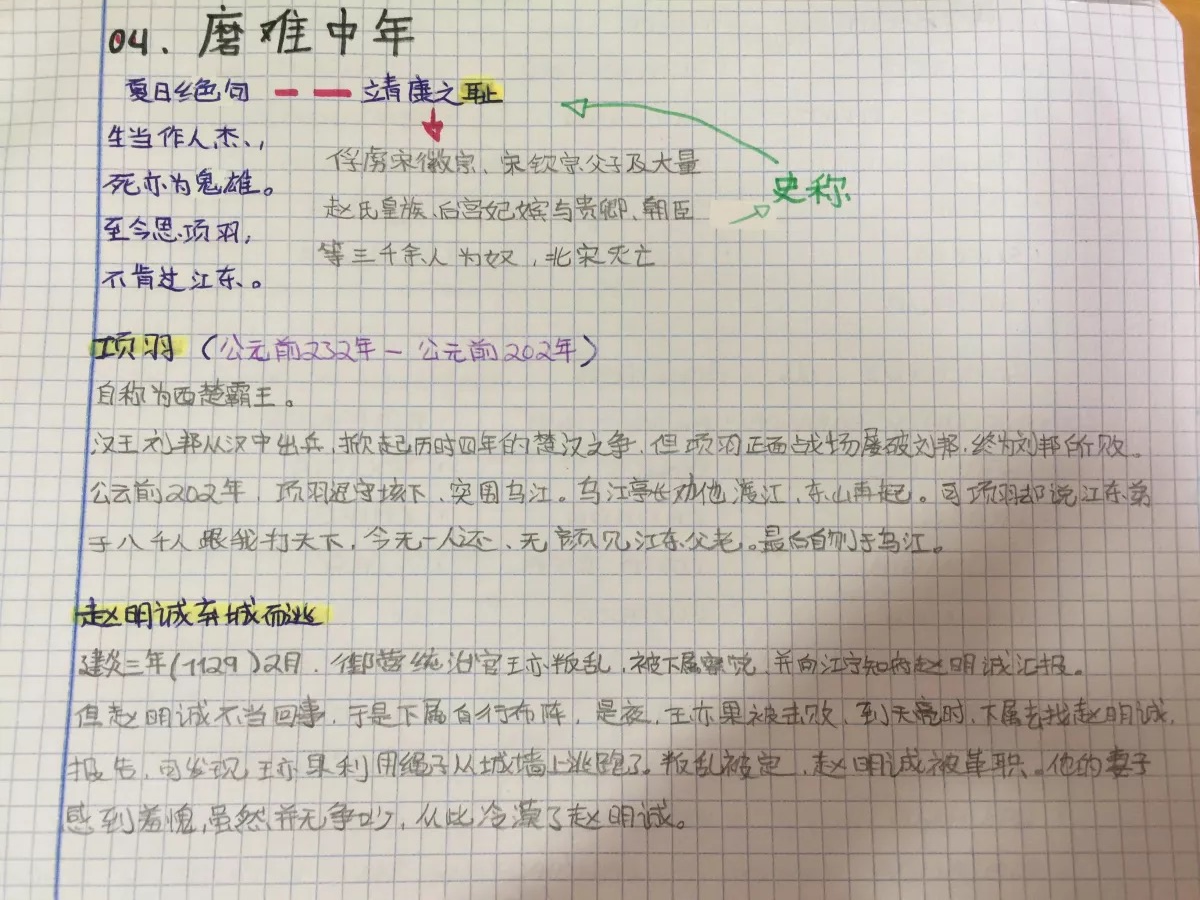 04. 磨难中年
夏日绝句 —— 靖康之耻
生当作人杰,
死亦为鬼雄。
至今思项羽,
不肯过江东。
俘虏宋徽宗、宋钦宗父子及大量
赵氏皇族、后宫妃嫔与贵卿、朝臣
等三千余人为奴,北宋灭亡
史称
项羽(公元前232年 - 公元前202年)
自称为西楚霸王。
汉王刘邦从汉中出兵,掀起历时四年的楚汉之争,但项羽正面战场屡破刘邦,终为刘邦所败。
公云前202年,项羽退守垓下,突围乌江。乌江亭长劝他渡江,东山再起。可项羽却说江东弟
于八千人跟我打天下,今无一人还、无颜见江东父老。最后自刎于乌江。
赵明诚弃城而逃
建炎三年(1129)2月,御营统治官王亦叛乱,被下属察觉,并向江宁知府赵明诚汇报。
但赵明诚不当回事,于是下属自行布阵,是夜,王亦果被击败,到天亮时,下属去找赵明诚,
报告,可发现王亦果利用绳子从城墙上逃跑了。叛乱被定,赵明诚被革职。他的妻子
感到羞愧,虽然并无争吵,从此冷漠了赵明诚。